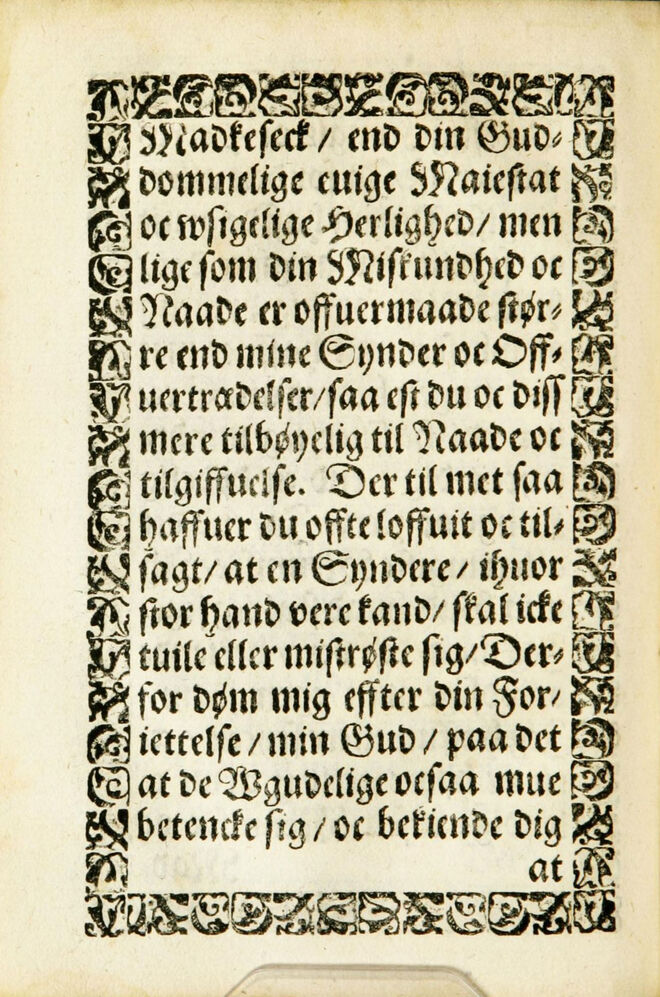 Madkeseck / end din Gud⸗
dommelige euige Maiestat
oc wsigelige Herlighed / men
lige som din Miskundhed oc
Naade er offuermaade stør⸗
re end mine Synder oc Off⸗
uertrædelser / saa est du oc diss
mere tilbøyelig til Naade oc
tilgiffuelse. Der til met saa
haffuer du offte loffuit oc til⸗
sagt / at en Syndere / ihuor
stor hand vere kand / skal icke
tuile eller mistrøste sig / Der⸗
for døm mig effter din For⸗
iettelse / min Gud / paa det
at de Wgudelige ocsaa mue
betencke sig / oc bekiende dig
at